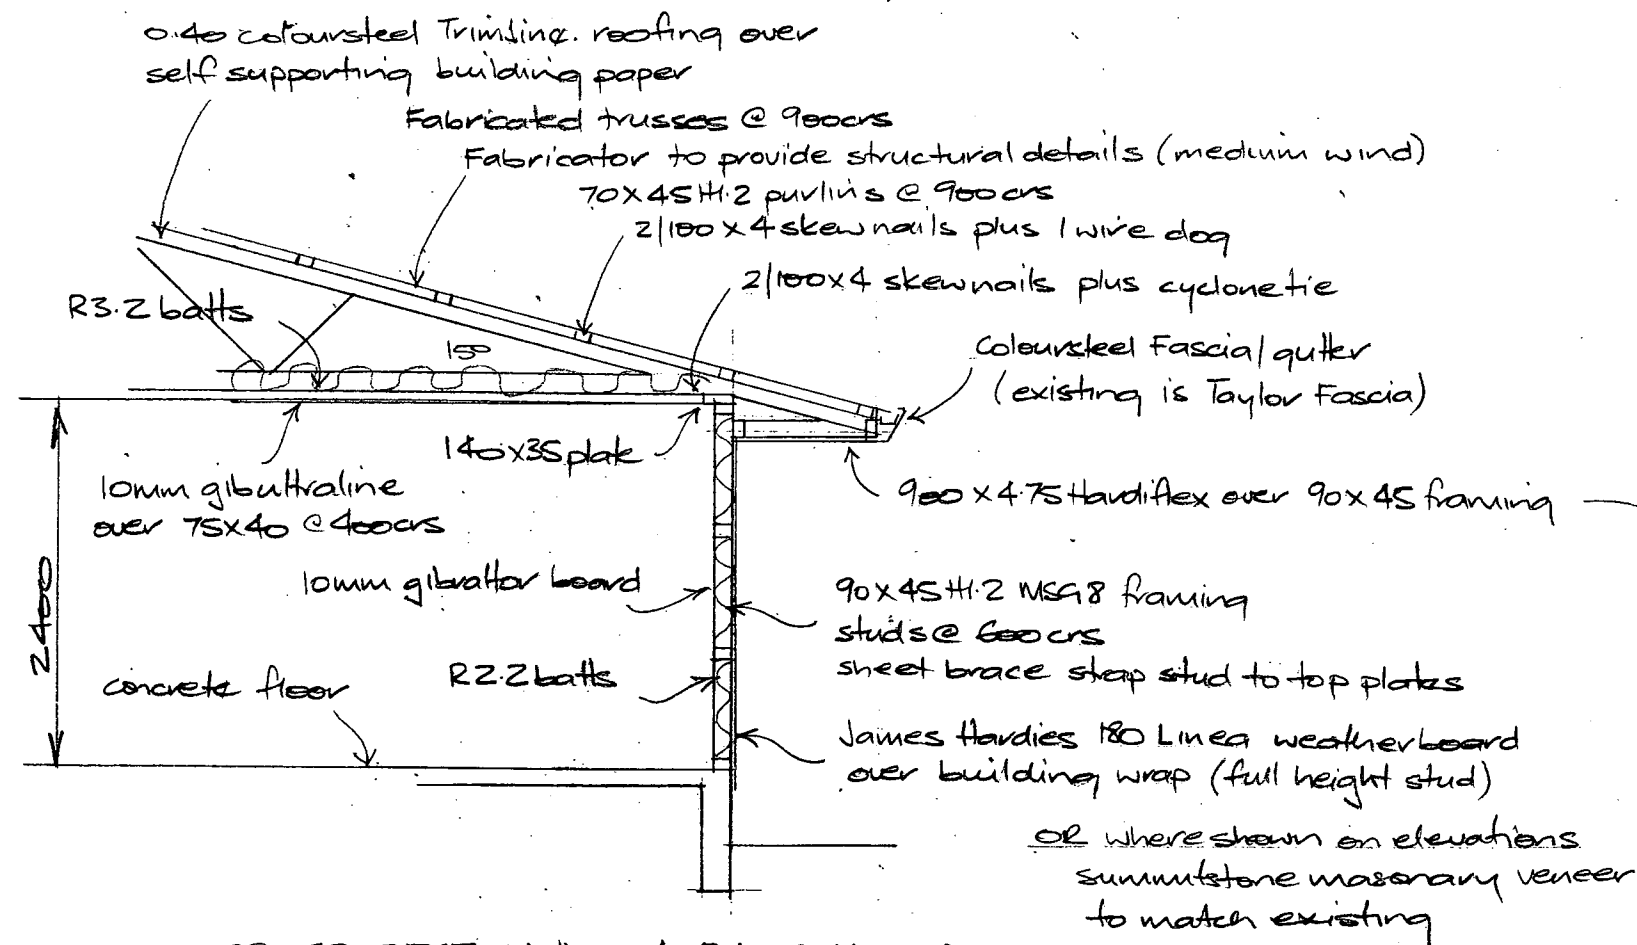 0.40 coloursteel Trimline. roofing over
self supporting building paper
Fabricated trusses @ 900crs
Fabricator to provide structural details (medium wind)
70x45 H1.2 purlins @ 900crs
2/100 x 4 skewnails plus 1 wire dog
2/100x4 skewnails plus cyclonetie
R3.2 batts
150
Coloursteel Fascia/gutter
(existing is Taylor Fascia)
140x35 plate
10mm gibultraline
over 75x40 @ 400crs
900 x 4.75 Hardiflex over 90x45 framing
2400
10mm gibraltor board
90x45 H1.2 MSG8 framing
studs @ 600crs
sheet brace strap stud to top plates
R2.2 batts
concrete floor
James Hardies 180 Linea weatherboard
over building wrap (full height stud)
OR where shown on elevations
summitstone masonary veneer
to match existing